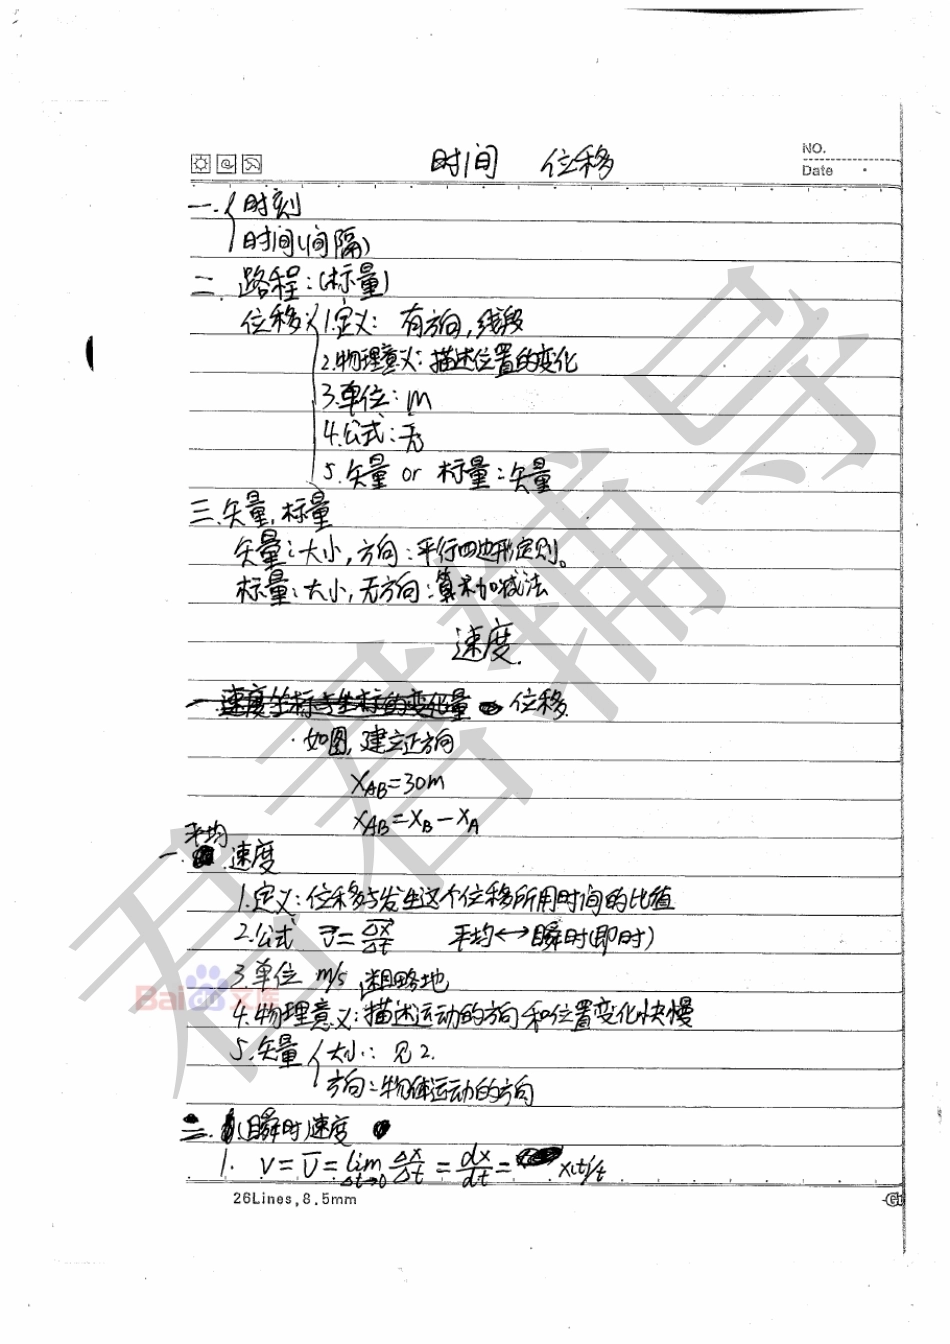 时间 位移
NO.
Date
一.{时刻
时间(间隔)
二. 路程:(标量)
位移{1.定义: 有方向,线段
2.物理意义:描述位置的变化
3.单位: m
4.公式:无
5.矢量 or 标量:矢量
三.矢量,标量
矢量:大小,方向:平行四边形定则。
标量:大小,无方向:算术加减法
速度.
一 速度坐标与坐标的变化量 位移.
·如图,建立正方向
X_AB=30m
X_AB=X_B-X_A
平均
一. 速度
1.定义:位移与发生这个位移所用时间的比值
2.公式 v̅=Δx/Δt 平均↔瞬时(即时)
3.单位 m/s 粗略地
4.物理意义:描述运动的方向和位置变化快慢
5.矢量{大小:见2.
方向:物体运动的方向
二. (瞬时)速度
1. v=v̅=lim Δt→0 Δx/Δt=dx/dt= x(t)/t
26Lines,8.5mm
Baidu文库
君君辅导